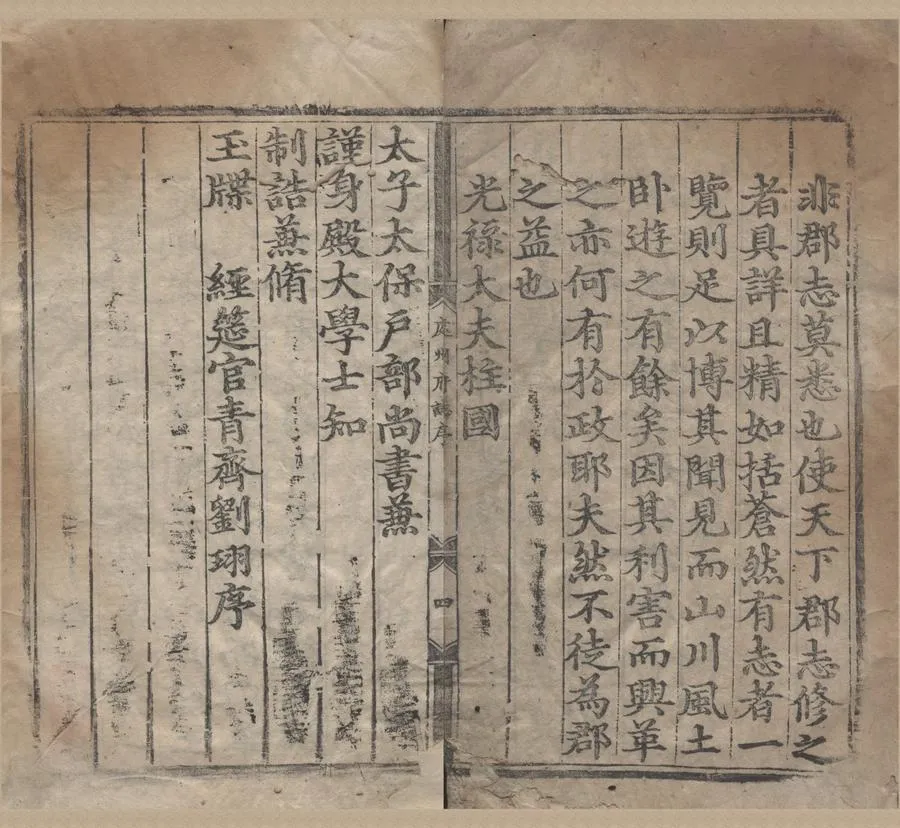 非郡志莫悉也使天下郡志修之
者具詳且精如括蒼然有志者一
覽則足以博其聞見而山川風土
卧遊之有餘矣因其利害而興革
之亦何有於政耶夫然不徒為郡
之益也
光祿大夫柱國
處州府誌序
四
太子太保戶部尚書蕪
謹身殿大學士知
制誥蕪脩
玉牒　經筵官青齊劉珝序